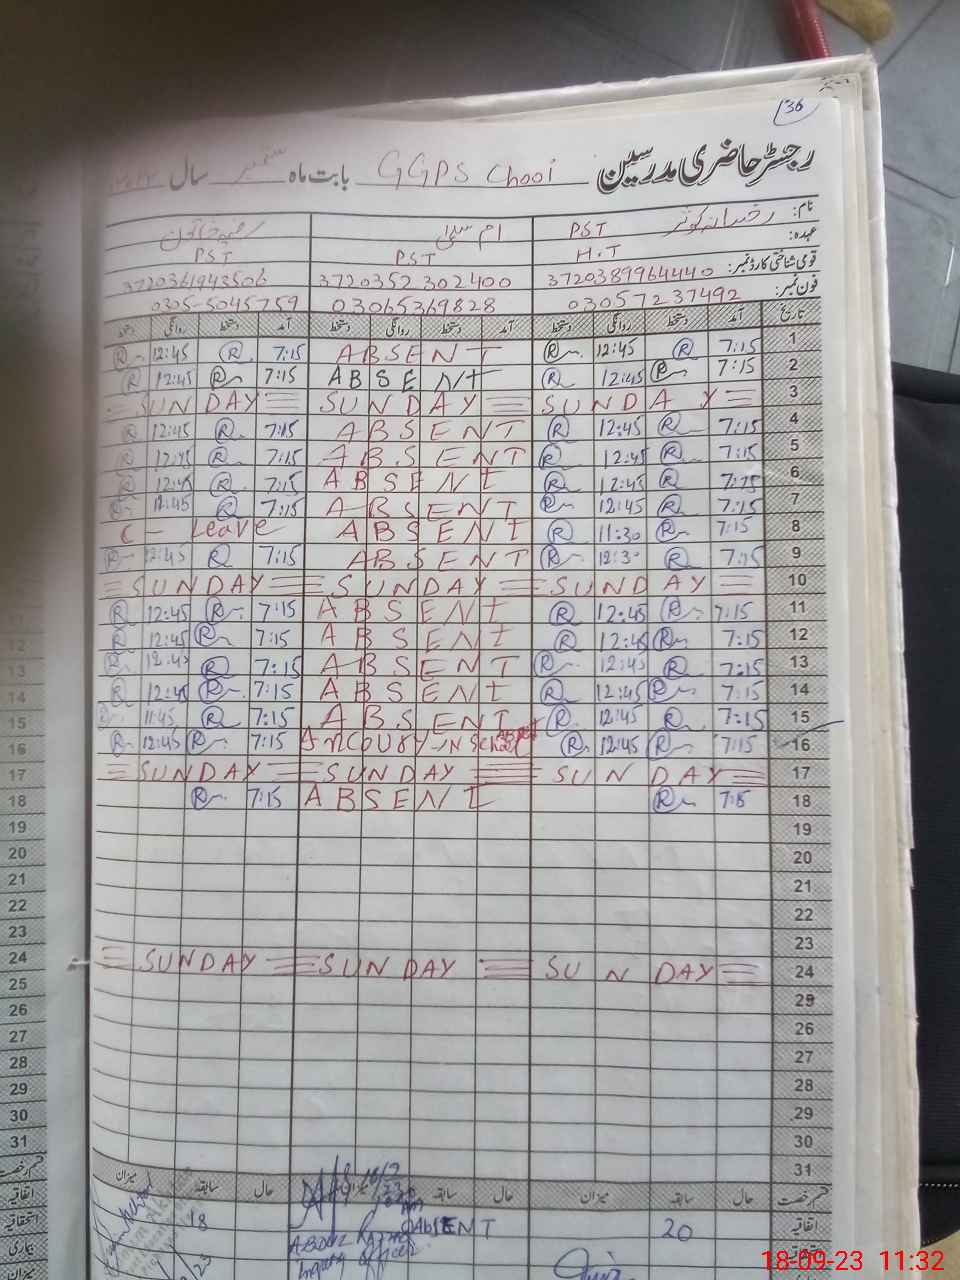 36
رجسٹر حاضری مدرسین GGPS Chooi بابت ماہ ستمبر سال
نام: رخسانہ کوثر ام سلمیٰ رضیہ خاتون
عہدہ: PST H.T PST PST
قومی شناختی کارڈ نمبر: 3720389964440 3720352302400 3720361943506
فون نمبر: 03057237492 03065369828 0305-5045759
تاریخ آمد دستخط روانگی دستخط آمد دستخط روانگی دستخط آمد دستخط روانگی دستخط
1 7:15 R 12:45 R ABSENT 7:15 R 12:45 R
2 7:15 R 12:45 R ABSENT 7:15 R 12:45 R
3 SUNDAY SUNDAY SUNDAY
4 7:15 R 12:45 R ABSENT 7:15 R 12:45 R
5 7:15 R 12:45 R ABSENT 7:15 R 12:45 R
6 7:15 R 12:45 R ABSENT 7:15 R 12:45 R
7 7:15 R 12:45 R ABSENT 7:15 R 12:45 R
8 7:15 R 11:30 R ABSENT C - Leave
9 7:15 R 12:30 R ABSENT 7:15 R 12:45 R
10 SUNDAY SUNDAY SUNDAY
11 7:15 R 12:45 R ABSENT 7:15 R 12:45 R
12 7:15 R 12:45 R ABSENT 7:15 R 12:45 R
13 7:15 R 12:45 R ABSENT 7:15 R 12:45 R
14 7:15 R 12:45 R ABSENT 7:15 R 12:45 R
15 7:15 R 12:45 R ABSENT 7:15 R 11:45 R
16 7:15 R 12:45 R 7:15 R 12:45 R
17 SUNDAY SUNDAY SUNDAY
18 7:15 R ABSENT 7:15 R
19
20
21
22
23
24 SUNDAY SUNDAY SUNDAY
25
26
27
28
29
30
31
قسم رخصت حال سابقہ میزان حال سابقہ میزان حال سابقہ میزان
اتفاقیہ 20 ABSENT 18
12
13
14
15
16
17
18
19
20
21
22
23
24
25
26
27
28
29
30
31
قسم رخصت
اتفاقیہ
استحقاقیہ
بیماری
18-09-23 11:32